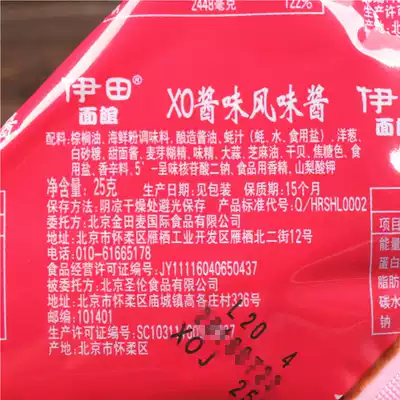 2448毫克 122%
伊田®
面館
XO酱味风味酱
配料:棕榈油、海鲜粉调味料、酿造酱油、蚝汁(蚝、水、食用盐)、洋葱、
白砂糖、甜面酱、麦芽糊精、味精、大蒜、芝麻油、干贝、焦糖色、食
用盐、香辛料、5'-呈味核苷酸二钠、食品用香料、山梨酸钾
净含量:25克 生产日期:见包装 保质期:15个月
保存方法:阴凉干燥处避光保存 产品标准代号:Q/HRSHL0002
委托方:北京金田麦国际食品有限公司
地址:北京市怀柔区雁栖工业开发区雁栖北二街12号
电话:010-61665178
食品经营许可证编号:JY11116040650437
被委托方:北京圣伦食品有限公司
地址:北京市怀柔区庙城镇高各庄村336号
邮编:101401
生产许可证编号:SC10311
产地:北京市怀柔区
L20 4
XOJ
伊
面
项目
能量
蛋白
脂肪
碳水
钠